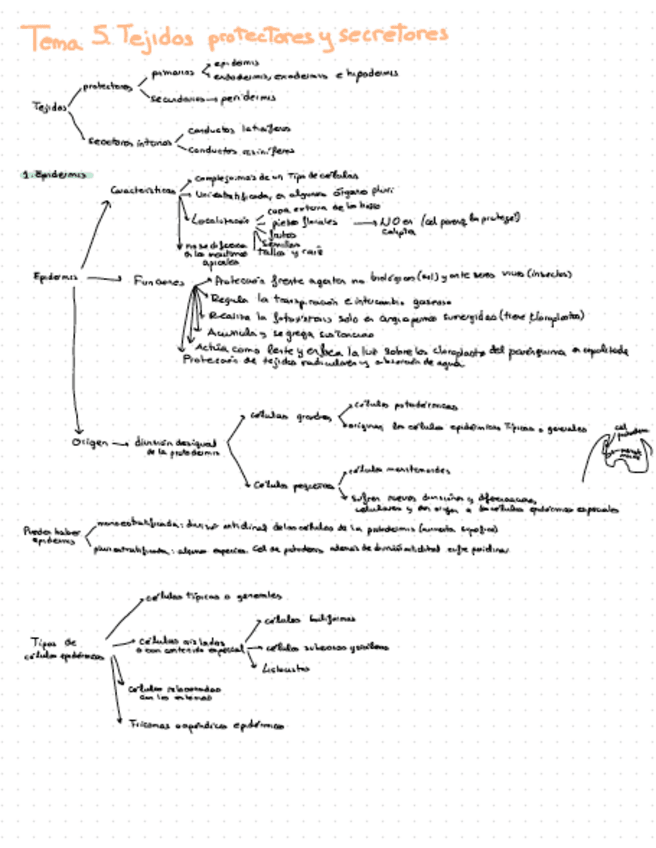 Tema 5. Tejidos protectores y secretores
Tejidos
protectores
primarios
epidermis
endodermis, exodermis e hipodermis
secundarios → peridermis
secretores internos
conductos laticíferos
conductos resiníferos
1. Epidermis
Epidermis
Características
de un Tipo de células
Uniestratificada, en algunos órganos pluri
Localización
capa externa de las hojas
piezas florales → NO en caliptra
frutos
semillas
tallos y raíz
no se diferencia en los meristemos apicales
Funciones
Protección frente agentes no biológicos (sol) y ante seres vivos (insectos)
Regula la transpiración e intercambio gaseoso
Realiza la fotosíntesis solo en angiospermas sumergidas (tiene cloroplastos)
Acumula y segrega sustancias
Actúa como lente y enfoca la luz sobre los cloroplastos del parénquima en empalizada
Protección de tejidos radiculares y absorción de agua
Origen → división desigual
de la protodermis
células grandes
células protodérmicas
originan las células epidérmicas Típicas o generales
células pequeñas
células meristemoides
sufren nuevas divisiones y diferenciaciones
celulares y dan origen a las células epidérmicas especiales
Puede haber
epidermis
monoestratificada: división anticlinal de las células de la protodermis (aumenta superficie)
pluriestratificada: algunas especies. Cel de protodermis además de división anticlinal sufre periclinal
Tipos de
células epidérmicas
células típicas o generales
células aisladas
o con contenido especial
células buliformes
células suberosas y silíceas
Litocistos
células relacionadas
con los estomas
Tricomas o apéndices epidérmicos